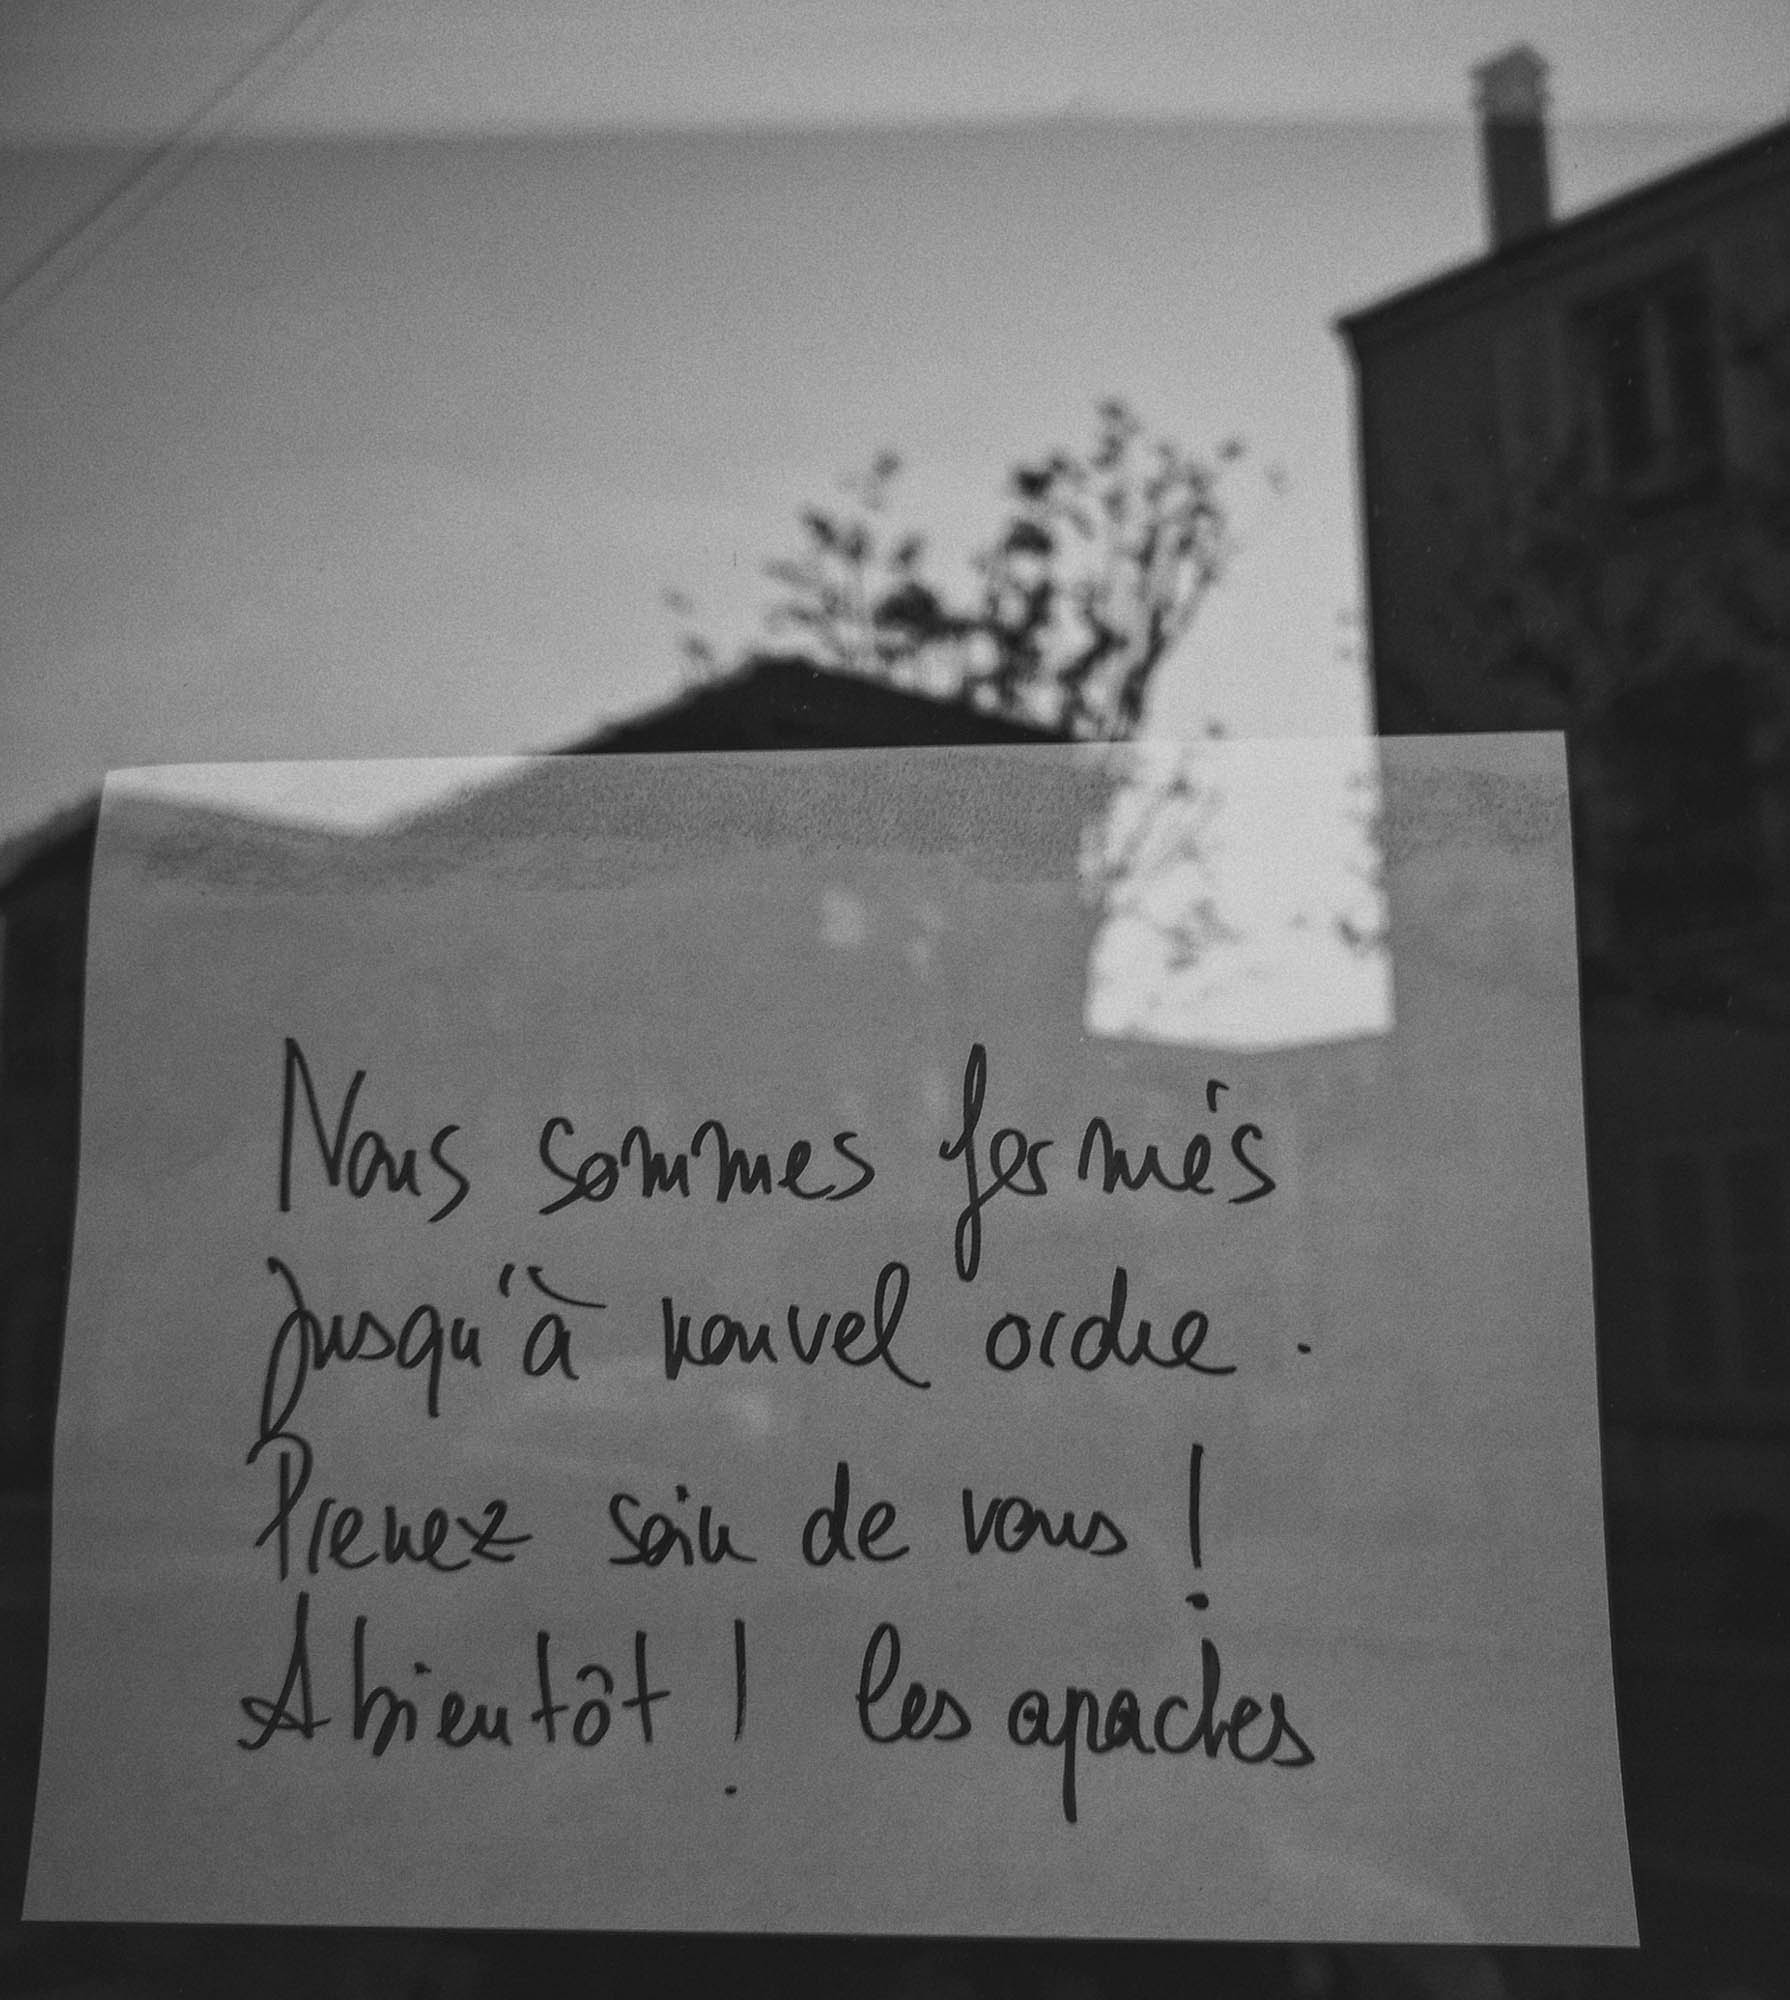 Nous sommes fermés
Jusqu'à nouvel ordre.
Prenez soin de vous !
A bientôt ! les apaches